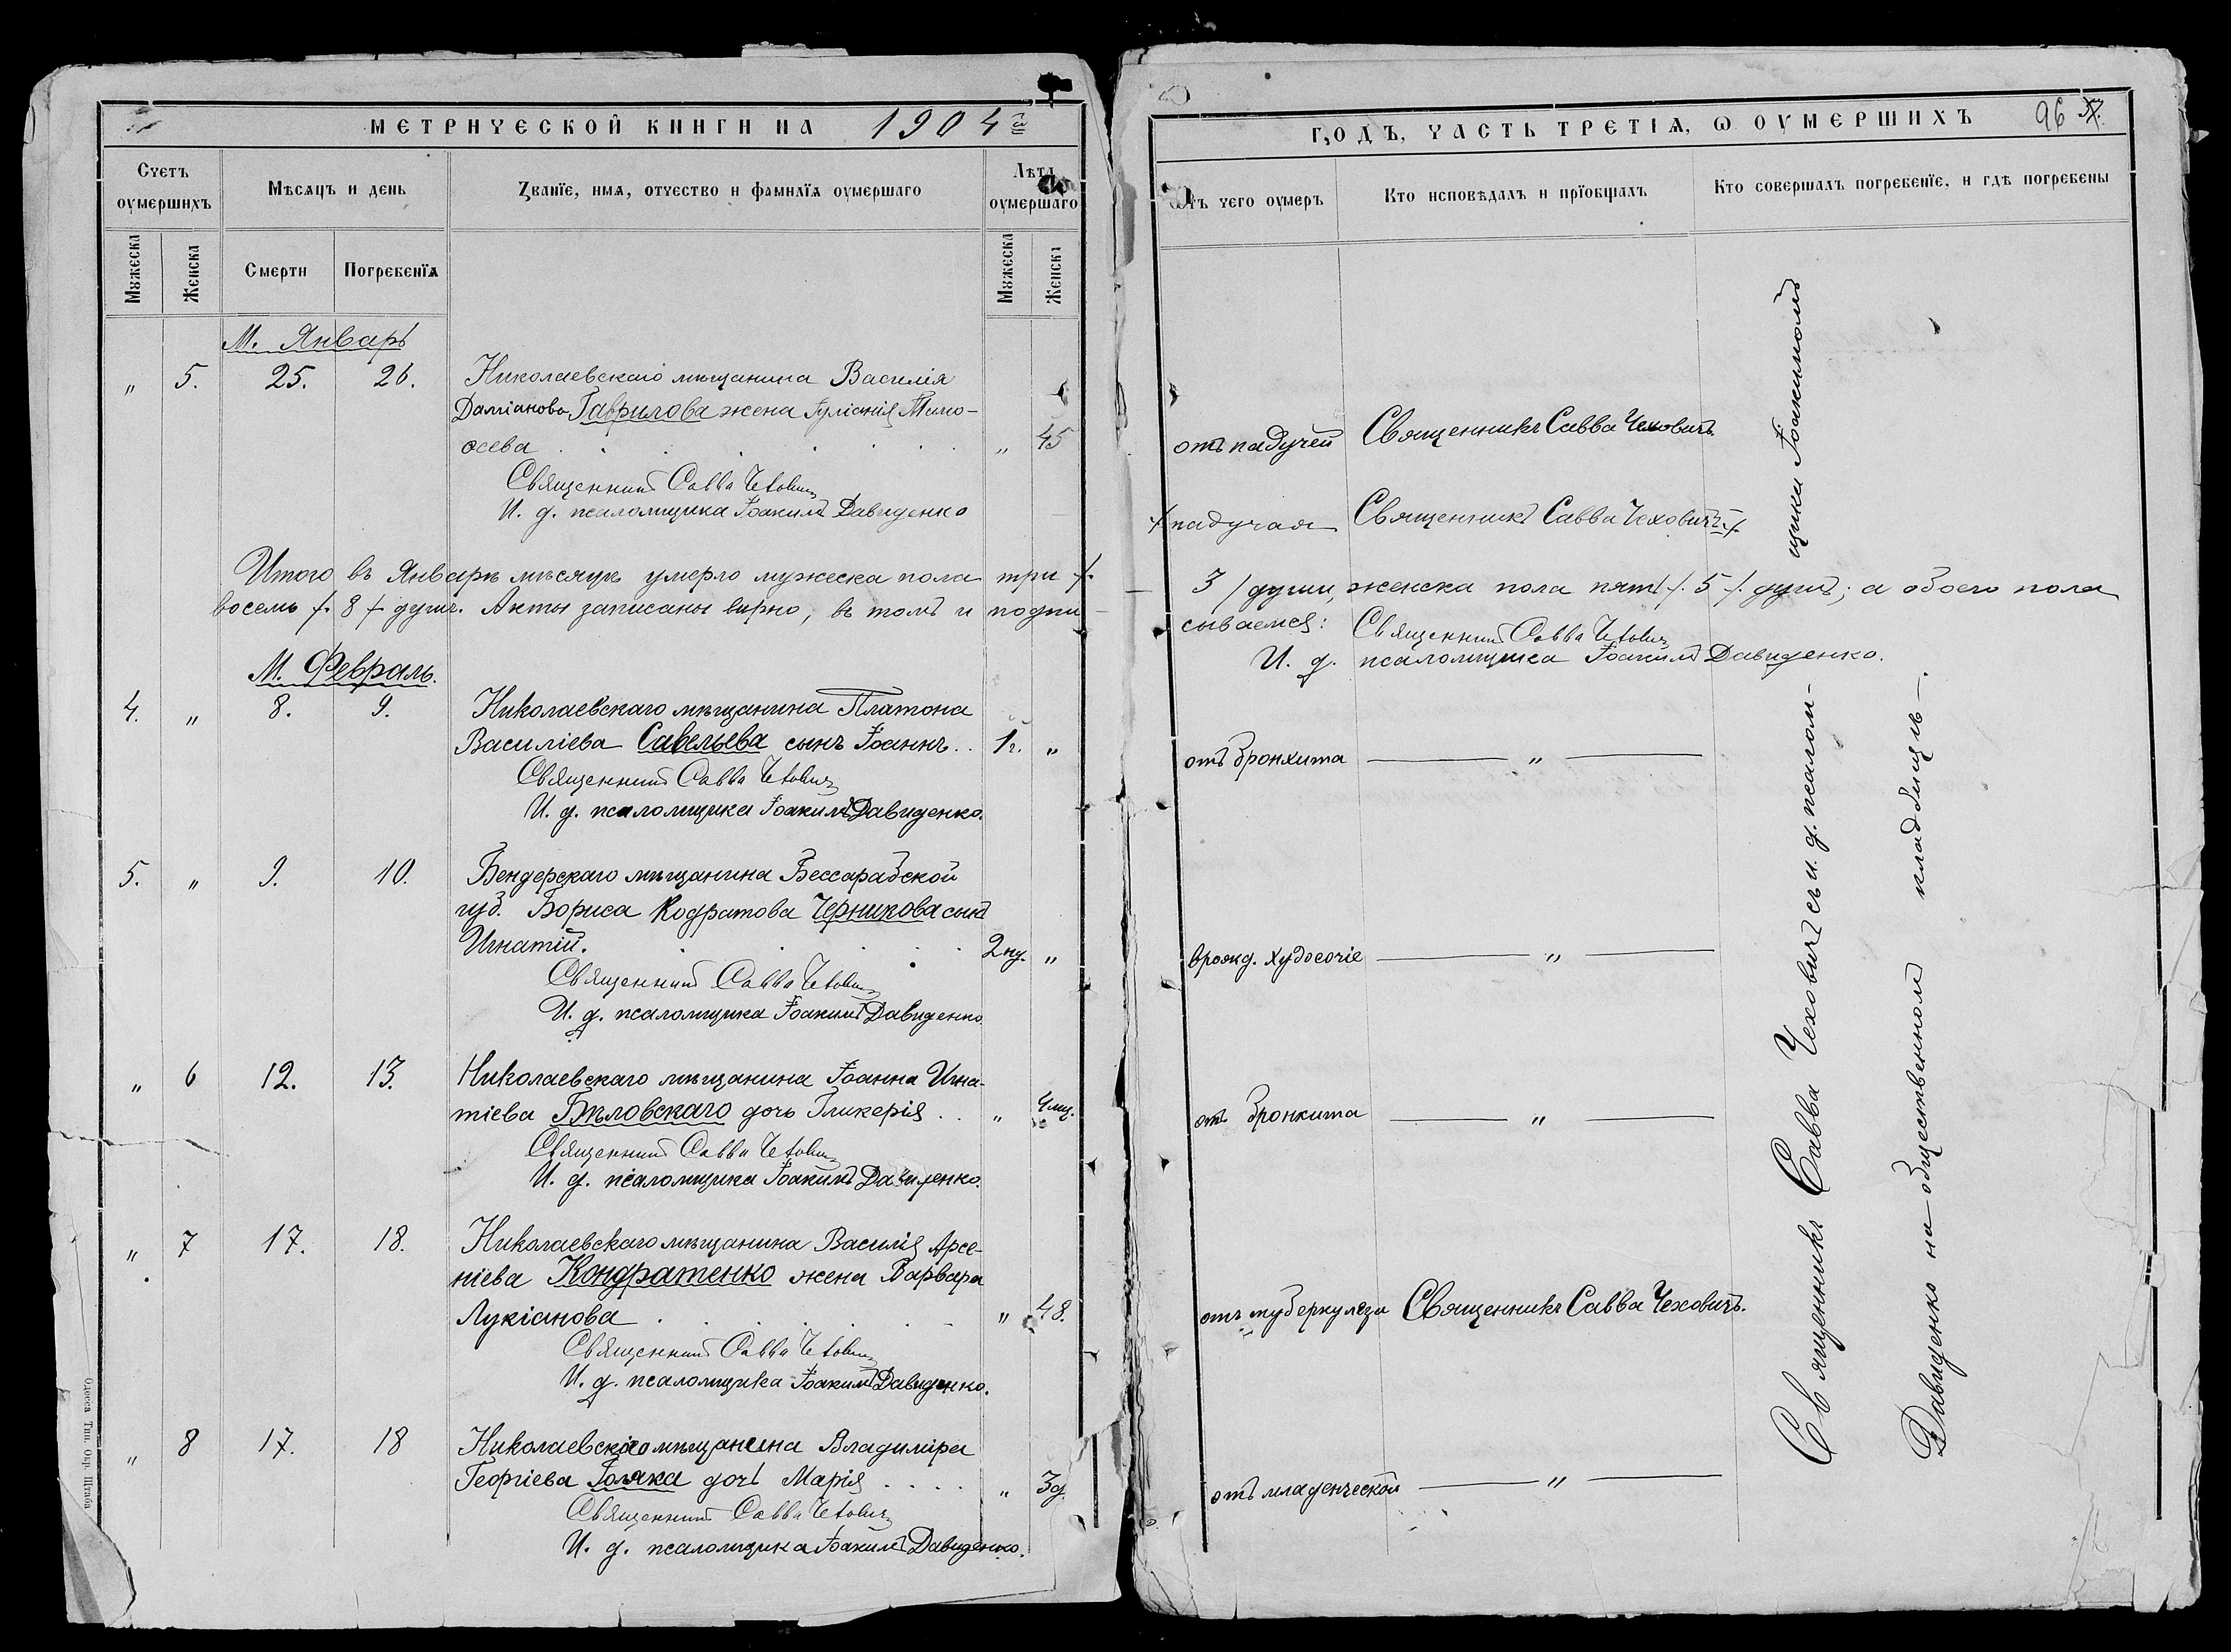 МЕТРИЧЕСКОЙ КНИГИ НА 1904 й
Счетъ оумершихъ
Мѣсяцъ и день
Званїе, имѧ, отчество и фамилїѧ оумершаго
Лѣта оумершаго
Мꙋжеска
Женска
Смерти
Погребенїѧ
Мꙋжеска
Женска
М. Январь
" 5. 25. 26. Николаевскаго мѣщанина Василія
Даміанова Гаврилова жена Іуліанія Тимо-
ѳеева . . . . . " 45
Священникъ Савва Чеховичъ
И. д. псаломщика Іоакимъ Давиденко
Итого въ Январѣ мѣсяцѣ умерло мужеска пола три /.
восемь /. 8 / душъ. Акты записаны вѣрно, въ томъ и подпи-
М. Февраль.
4. " 8. 9. Николаевскаго мѣщанина Платона
Василіева Савельева сынъ Іоаннъ . . 1 г. "
Священникъ Савва Чеховичъ
И. д. псаломщика Іоакимъ Давиденко.
5. " 9. 10. Бендерскаго мѣщанина Бессарабской
губ. Бориса Кодратова Черникова сынъ
Игнатій. . . . . 2 нд. "
Священникъ Савва Чеховичъ
И. д. псаломщика Іоакимъ Давиденко
" 6 12. 13. Николаевскаго мѣщанина Іоанна Игна-
тіева Бѣловскаго дочь Гликерія . . " 4 мц.
Священникъ Савва Чеховичъ
И. д. псаломщика Іоакимъ Давиденко.
" 7 17. 18. Николаевскаго мѣщанина Василія Арсе-
ніева Кондратенко жена Варвара
Лукіанова . . . . . " 48.
Священникъ Савва Чеховичъ
И. д. псаломщика Іоакимъ Давиденко.
" 8 17. 18 Николаевскаго мѣщанина Владиміра
Георгіева дочь Марія . . . . " 3 д.
Священникъ Савва Чеховичъ
И. д. псаломщика Іоакимъ Давиденко.
Одесса Тип. Окр. Штаба
ГОДЪ, ЧАСТЬ ТРЕТІѦ, Ѡ ОУМЕРШИХЪ 96
Ѿтъ чего оумеръ
Кто исповѣдалъ и прїобщалъ
Кто совершалъ погребенїе, и гдѣ погребены
отъ падучей Священникъ Савва Чеховичъ.
/ падучая Священникъ Савва Чеховичъ /.
3 / души, женска пола пять /. 5 /. душъ; а обоего пола
сываемся: Священникъ Савва Чеховичъ
И. д. псаломщика Іоакимъ Давиденко.
отъ бронхита — " —
врожд. худосочіе — " —
отъ бронхита — " —
отъ туберкулеза Священникъ Савва Чеховичъ.
отъ младенческой — " —
Священникъ Савва Чеховичъ съ и. д. псалом-
щика Іоакимомъ
Давиденко на общественномъ кладбищѣ.